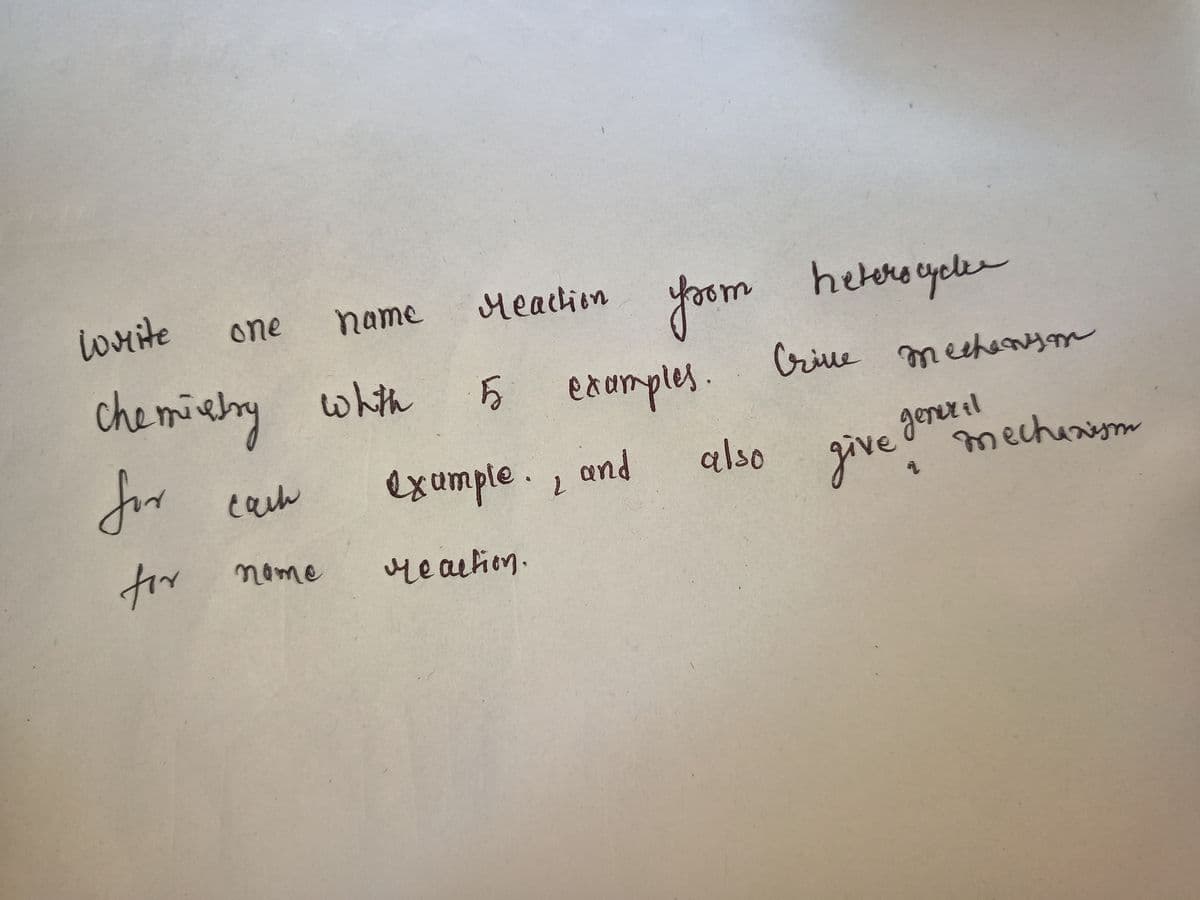 write one name reaction from heterocycle
chemistry whth 5 examples. Give mechanysm
for each example., and also give general mechanism
for name reaction.